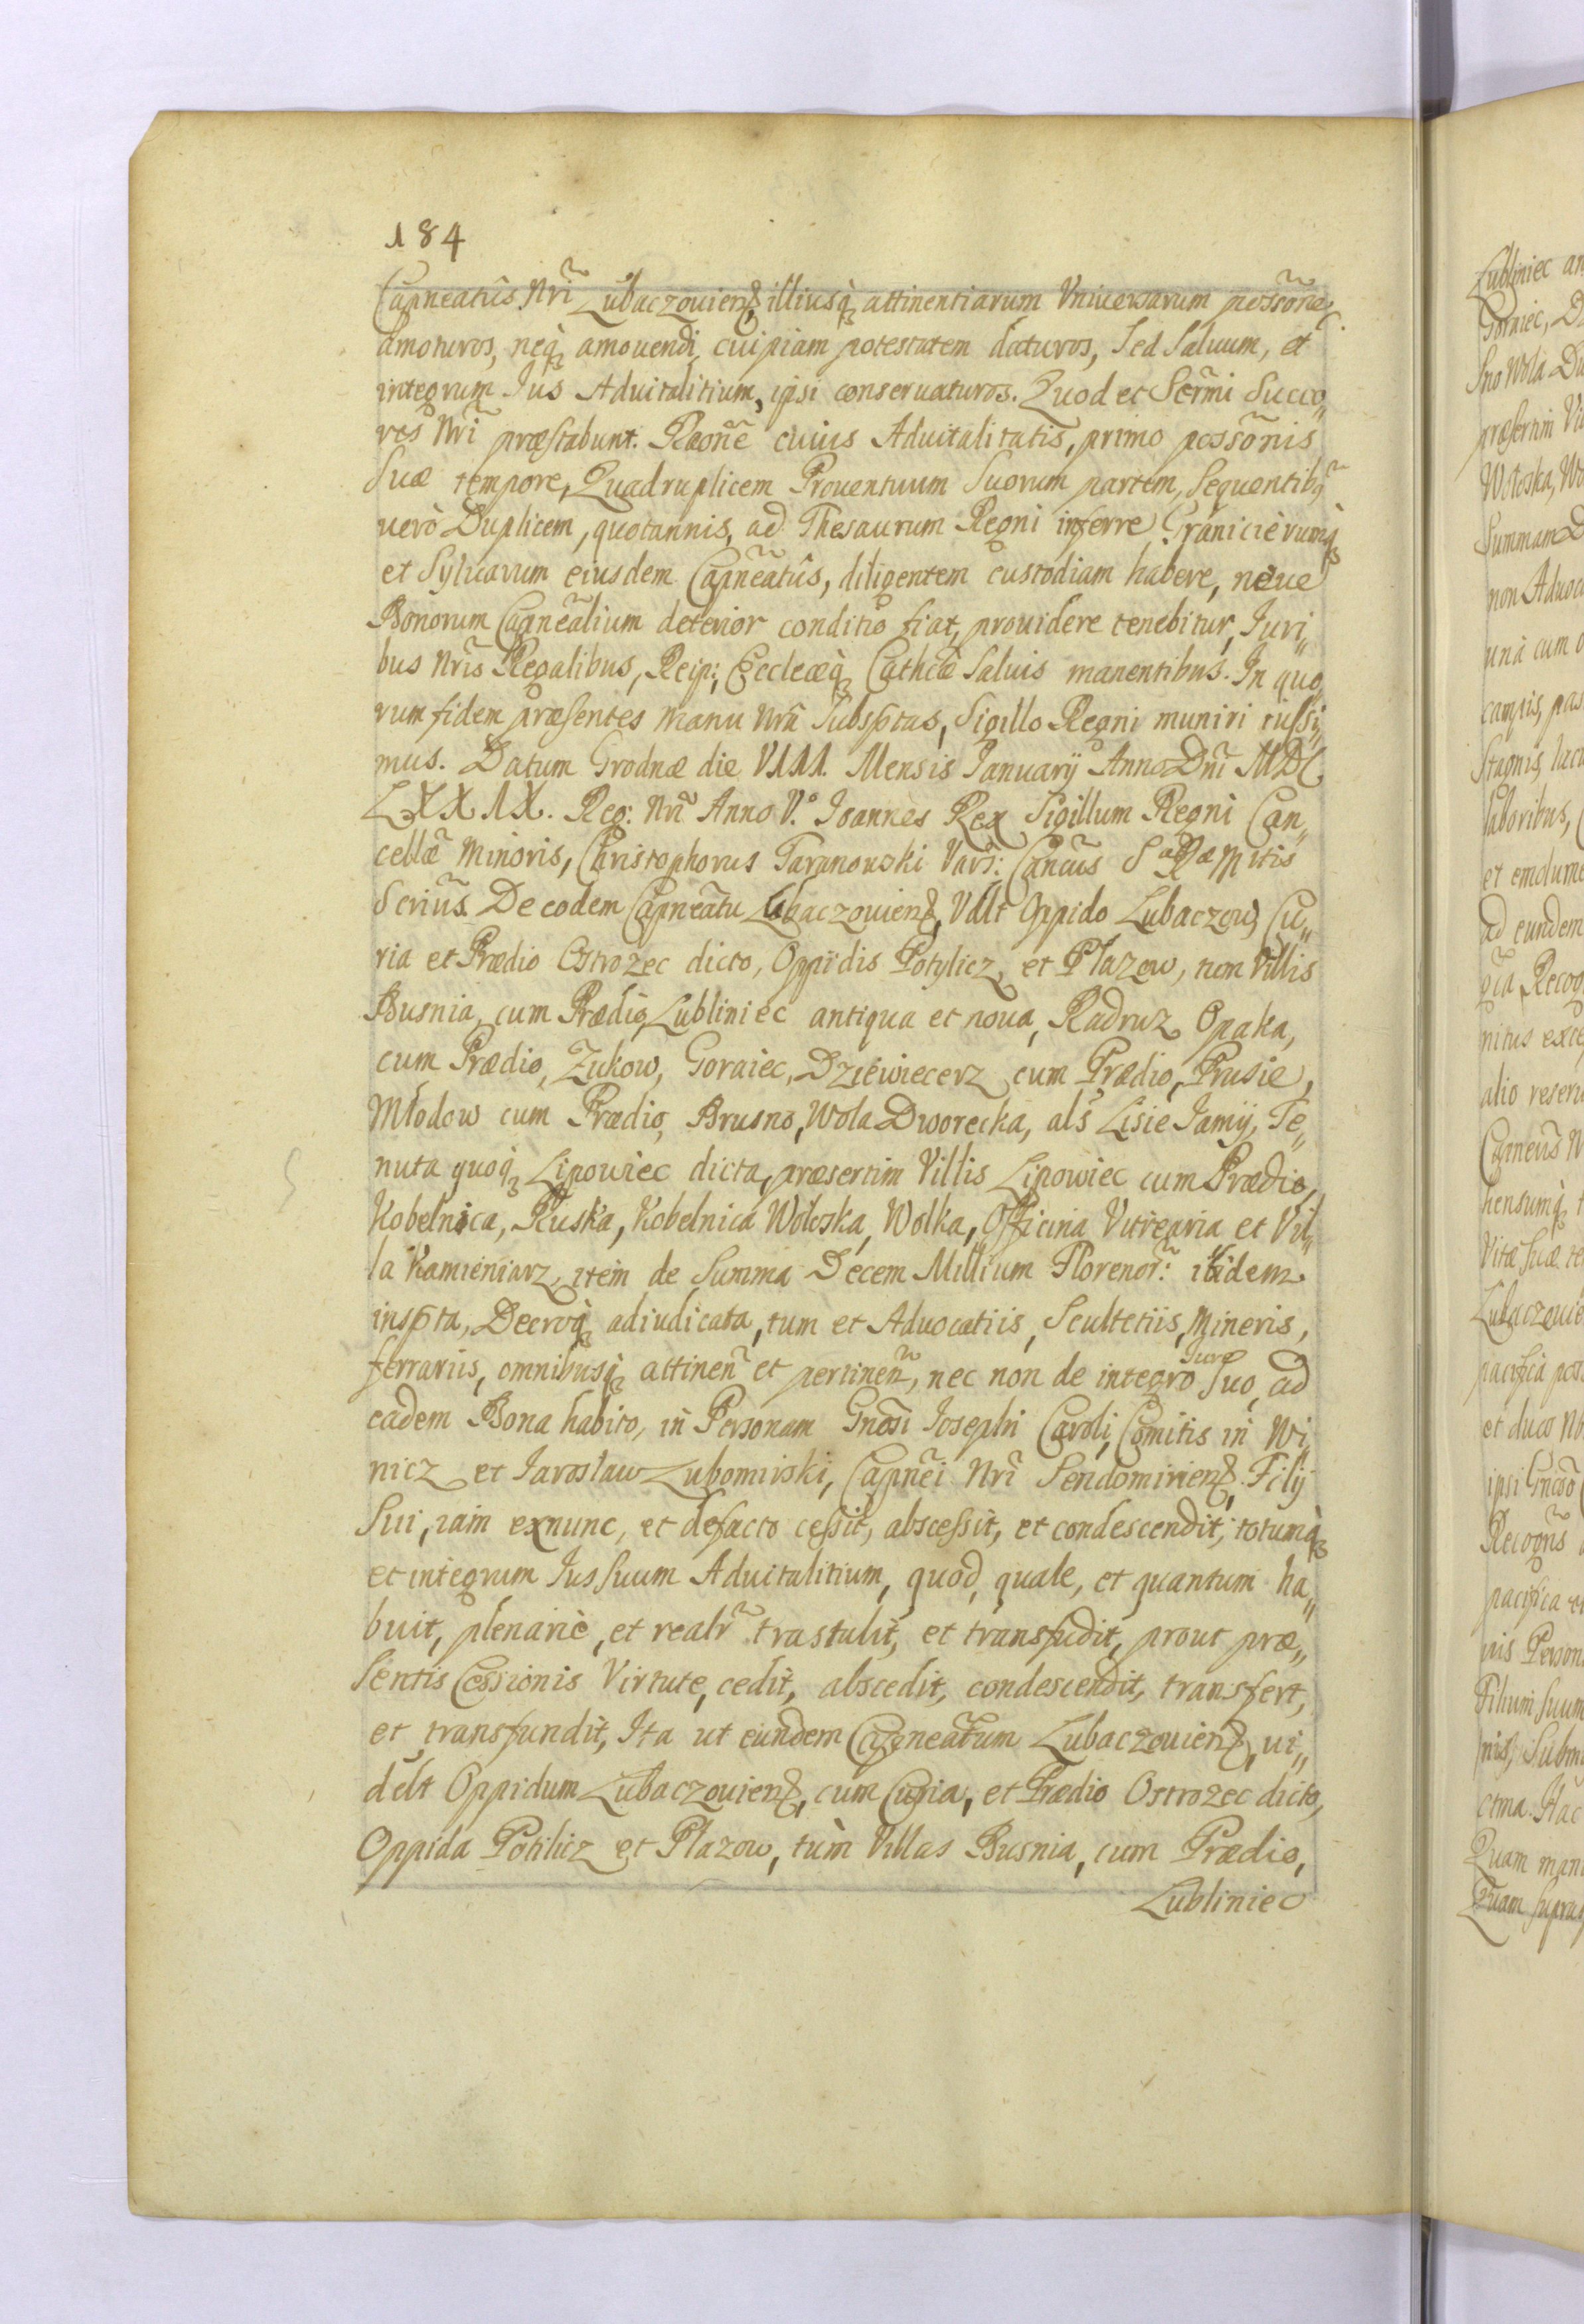 184
Capneatûs Nri Lubaczouien, illiusq attinentiarum Vniuersarum possone
amoturos, neq amouendi cuipiam potestatem daturos, Sed Saluum, et
integrum Jus Aduitalitium, ipsi conseruaturos. Quod et Sermi Succo„
res Nri præstabunt. Raone cuius Aduitalitatis, primo possonis
Suæ tempore, Quadruplicem Prouentuum Suorum partem, Sequentibq
uerò Duplicem, quotannis, ad Thesaurum Regni inferre Granicierumq
et Syluarum eiusdem Capneatûs, diligentem custodiam habere, neue
Bonorum Capnealium deterior conditio fiat, prouidere tenebitur, Juri„
bus Nris Regalibus, Reip: Eccleæq Cathcæ Saluis manentibus. In quo„
rum fidem præsentes Manu Nra Subsptas, Sigillo Regni muniri iussi„
mus. Datum Grodnæ die VIII. Mensis Januarij Anno Dni MDC
LXXIX. Reg: Nri Anno V.º Joannes Rex Sigillum Regni Can„
cellæ Minoris, Christophorus Taranowski Vars: Cancus S RæMttis
Serius. De eodem Capneatu Lubaczouien, Vdlt Oppido Lubaczow, Cu„
ria et Prædio Ostrozec dicto, Oppidis Potylicz, et Płazow, tum Villis
Busnia, cum Prædio, Lubliniec antiqua et noua, Radruz, Opaka,
cum Prædio, Zukow, Goraiec, Dziewiecerz cum Prædio, Prusie,
Młodow cum Prædio, Brusno, Wola Dworecka, als Lisie Jamy, Te„
nuta quoq Lipowiec dicta, præsertim Villis Lipowiec cum Prædio,
Kobelnica, Ruska, Kobelnica Wołoska, Wolka, Officina Vitrearia et Vil„
la Kamieniarz, item de Summa Decem Millium Florenor: ibidem
inspta, Decroq adiudicata, tum et Aduocatiis, Scultetiis, Mineris,
ferrariis, omnibusq attinen et pertinen, nec non de integro Jure Suo, ad
eadem Bona habito, in Personam Gnosi Josephi Caroli, Comitis in Wi„
nicz et Jarosław Lubomirski, Capnei Nri Sendomirien, Filij
Sui, iam exnunc, et defacto cessit, abscessit, et condescendit, totumq
et integrum Jus Suum Aduitalitium, quod, quale, et quantum ha„
buit, plenariè, et realr trastulit, et transfudit, prout præ„
sentis Cessionis Virtute, cedit, abscedit, condescendit, transfert,
et transfundit, Ita ut eundem Capneatum Lubaczouien, ui„
delt Oppidum Lubaczouien, cum Curia, et Prædio Ostrozec dicto,
Oppida Potilicz et Płazow, tùm Villas Busnia, cum Prædio,
Lubliniec